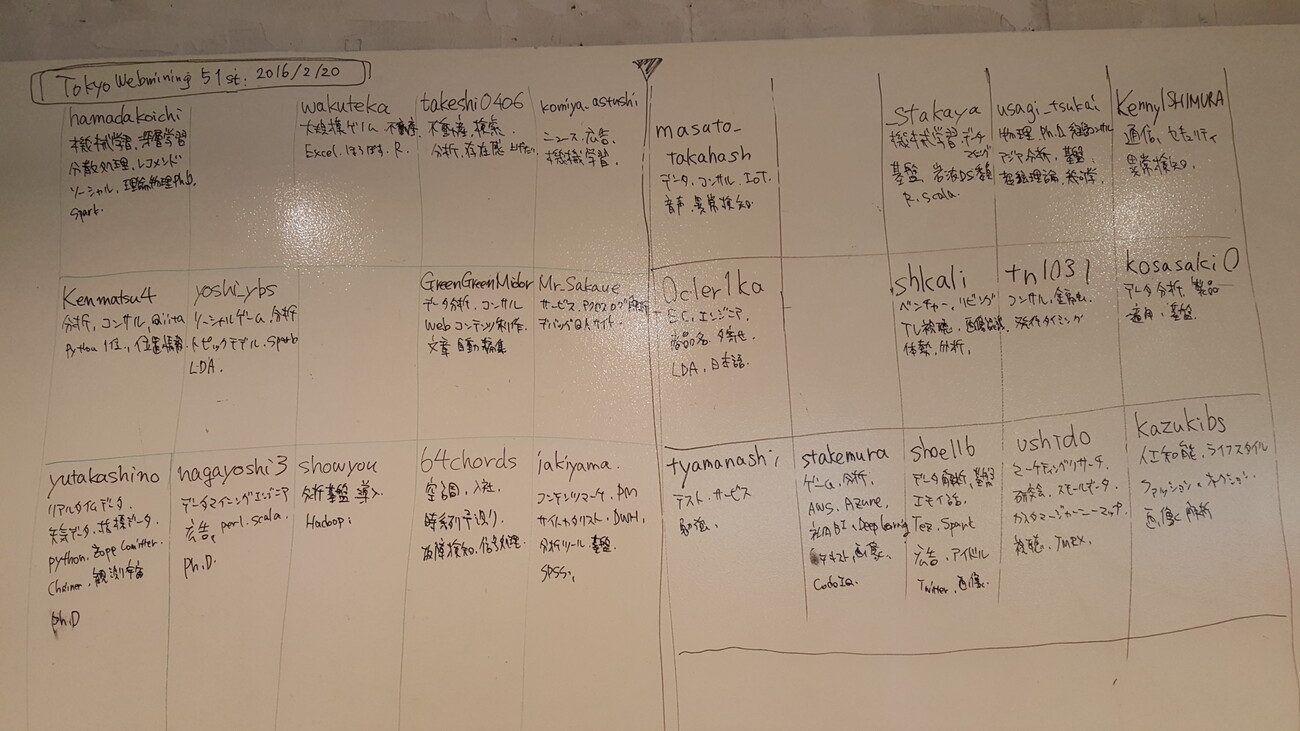 Tokyo Webmining 51st: 2016/2/20
hamadakoichi
機械学習, 深層学習
分散処理, レコメンド
ソーシャル, 理論物理Ph.D.
Spark.
wakuteka
大規模ゲーム 不動産
Excel. R.
takeshi0406
不動産, 検索.
分析, 存在感
komiya_astushi
ニュース, 広告
機械学習.
masato_
takahash
データ, コンサル, IoT.
音声, 異常検知.
stakaya
機械学習 データ
マイニング
基盤, 岩波DS
R. Scala.
usagi_tsukai
物理, Ph.D
アジア分析, 基盤.
超弦理論,
KennyISHIMURA
通信, セキュリティ
異常検知.
Kenmatsu4
分析, コンサル, Qiita
Python 1位, 位置情報
yoshi_ybs
ソーシャルゲーム, 分析
トピックモデル, Spark
LDA.
GreenGreenMidor
データ分析, コンサル
Webコンテンツ制作,
文章自動編集
Mr_Sakaue
サービス, アクセスログ解析
サイト
0cler1ka
EC, エンジニア,
商品名,
LDA, 日本語.
shkali
ベンチャー, リビング
TV視聴,
体勢, 分析,
tn1031
コンサル, 金融
タイミング
kosasaki0
データ分析, 製品
適用, 基盤.
yutakashino
リアルタイムデータ,
天気データ, 指標データ
python, Zope Comitter.
Chainer, 観測宇宙
ph.D
nagayoshi3
データマイニングエンジニア
広告, perl. scala.
Ph.D.
showyou
分析基盤 導入
Hadoop
64chords
空調, 入社
時系列予測り
故障検知, 信号処理
jakiyama.
コンテンツマーケ, PM
サイトカタリスト, DWH,
分析ツール 基盤.
SPSS,
tyamanashi
テスト, サービス
勉強,
stakemura
ゲーム, 分析,
AWS, Azure,
社内BI, Deep learning
テキスト, 画像,
CodeIQ.
shoe116
データ解析, 基盤
エモイ話
Tez, Spark
広告, アイドル
Twitter, 画像.
ushido
マーケティングリサーチ,
研究会, スモールデータ
カスタマージャーニーマップ,
視聴,
kazukibs
人工知能, ライフスタイル
ファッション
画像解析